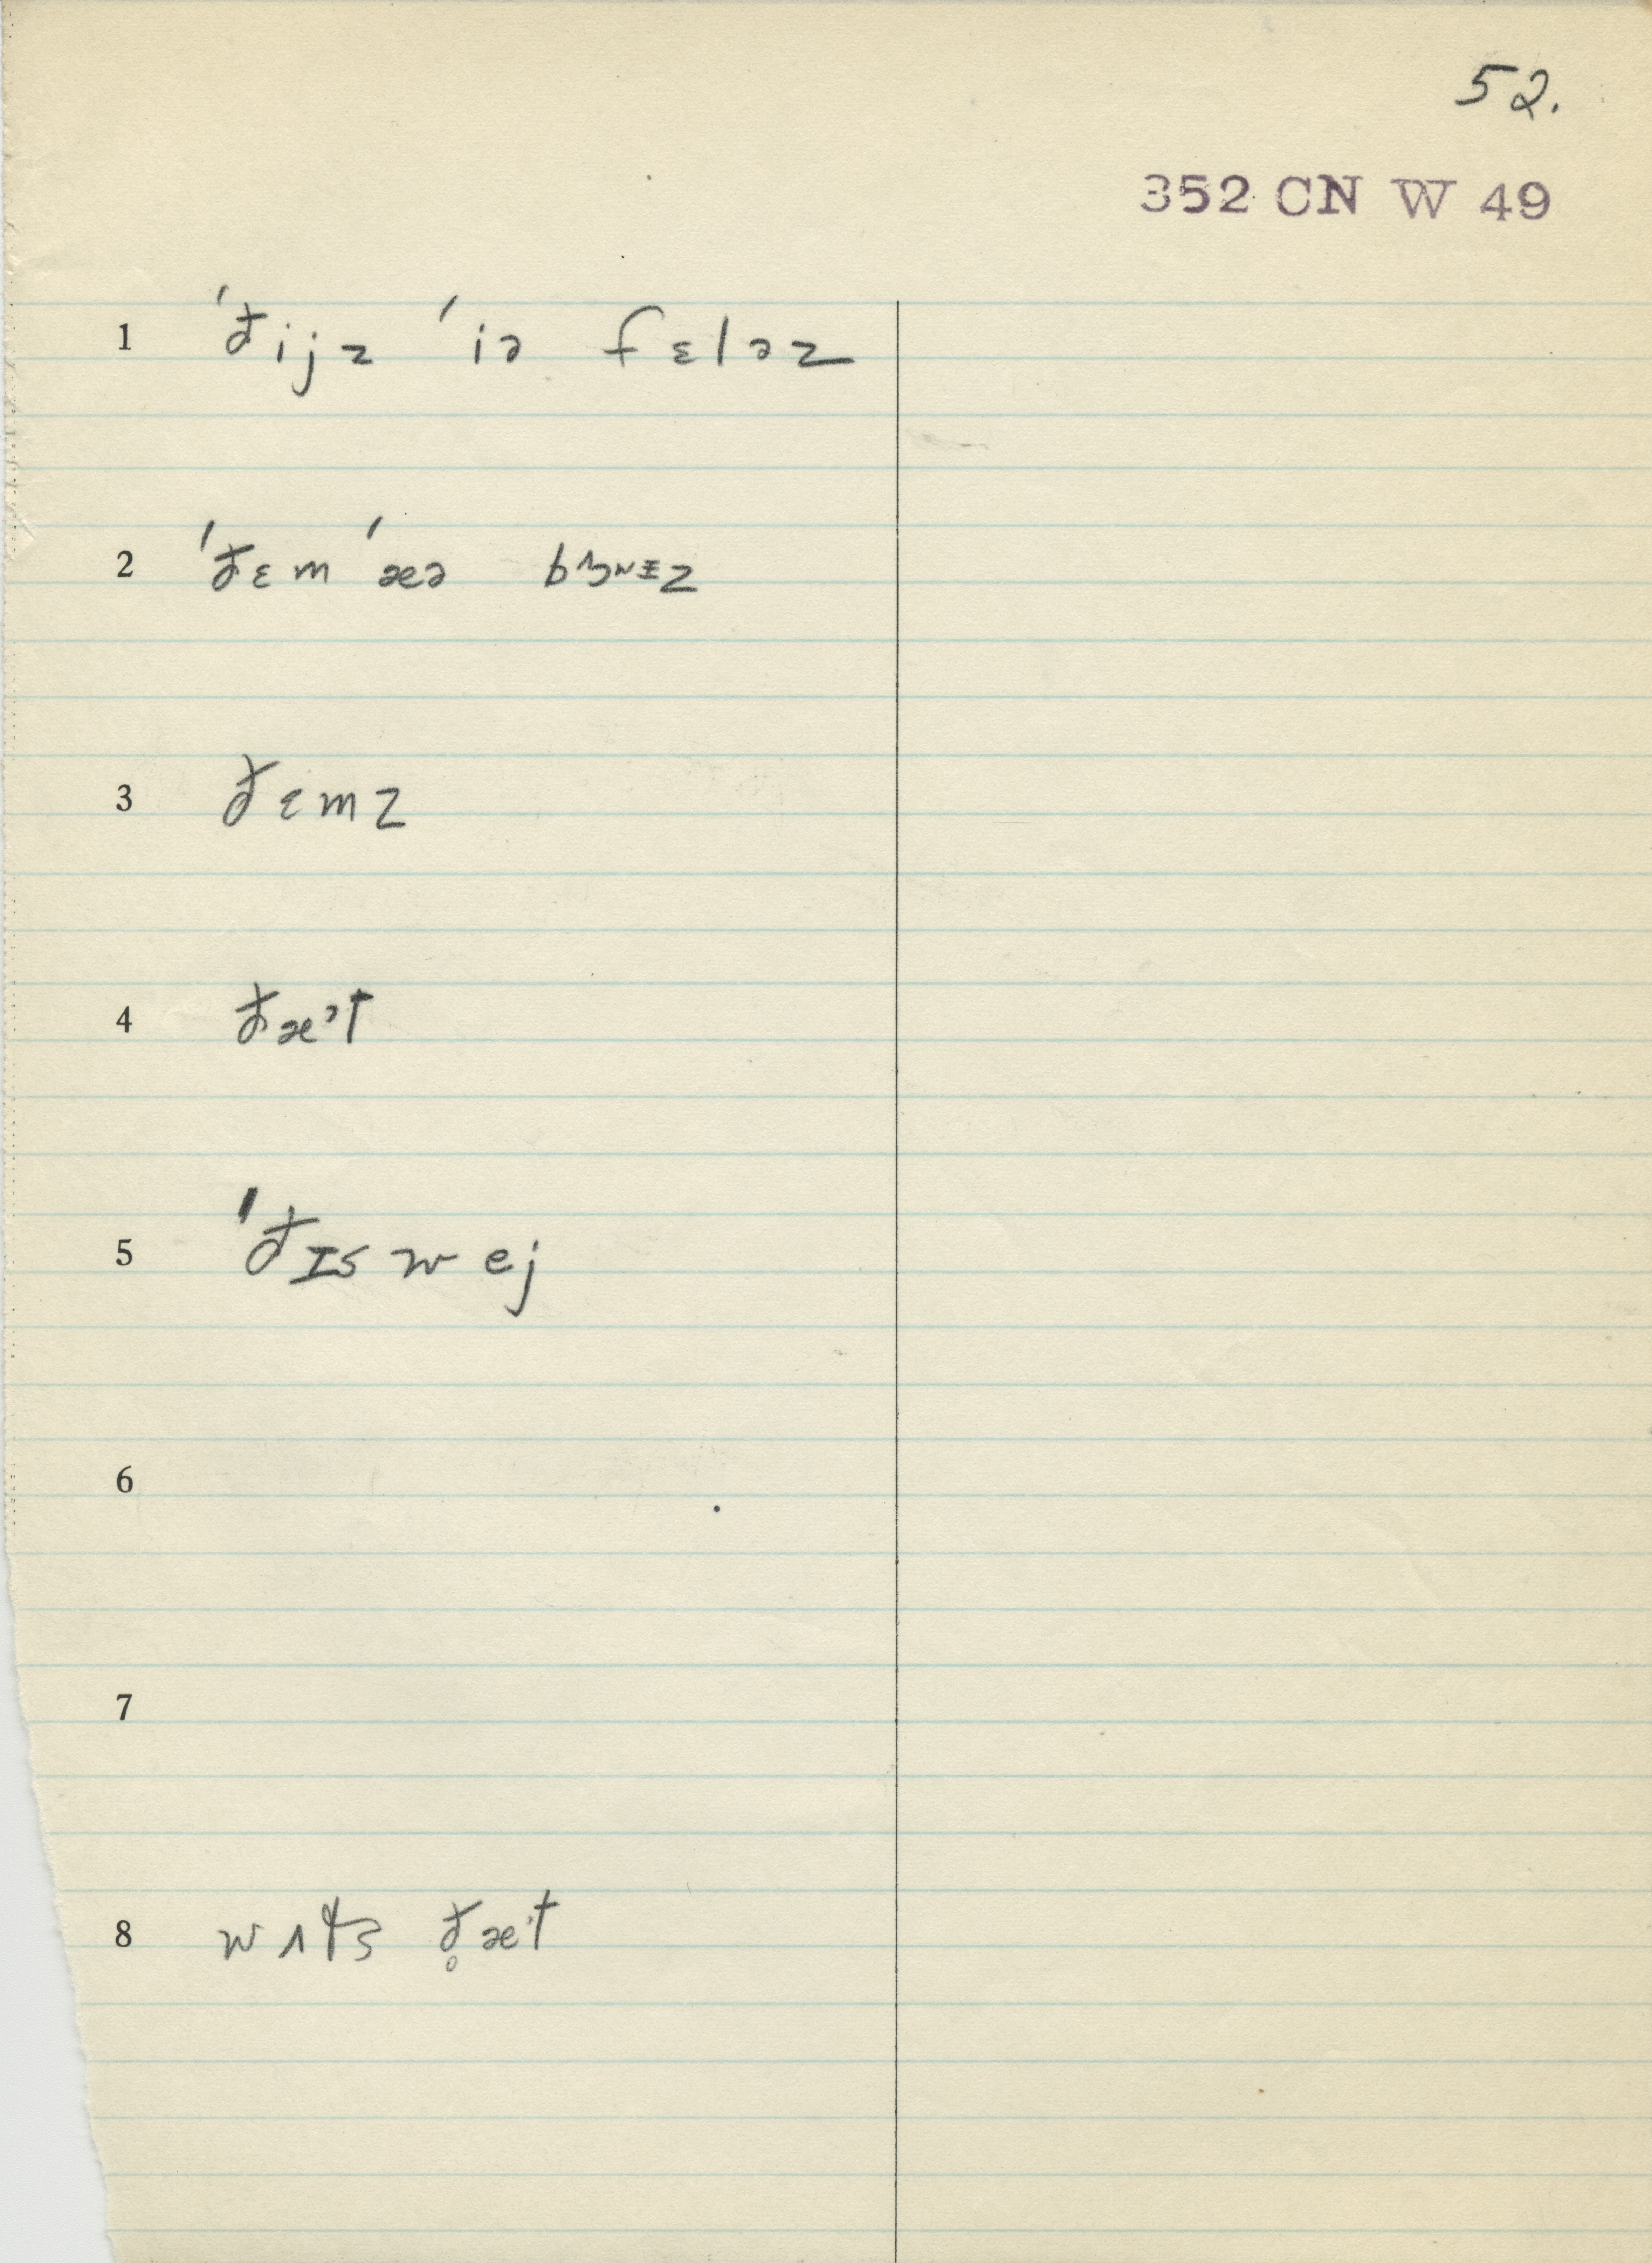 52.
352 CN W 49
1 ˈðijz ˈiə fɛləz
2 ˈðɛm ˈæə
3 ðɛmz
4 ðæˀt
5 ˈðɪs wej
6
7
8 ð̥æˀt